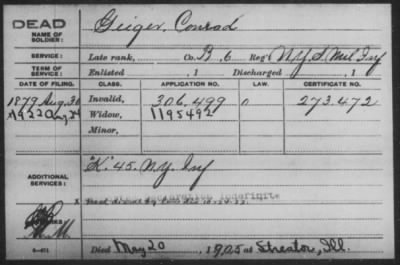 DEAD
NAME OF SOLDIER:
Geiger, Conrad
SERVICE:
Late rank, Co. B, 6 Reg't N.Y.S. Mil Inf
TERM OF SERVICE:
Enlisted , 1 Discharged , 1
DATE OF FILING. CLASS. APPLICATION NO. LAW. CERTIFICATE NO.
1879 Aug. 30 Invalid, 306,499 n 273.472
1922 Widow, 1195492
Minor,
ADDITIONAL SERVICES:
"K" 45. N.Y. Inf
x
REMARKS
Died May 20, 1905 at Streator, Ill.